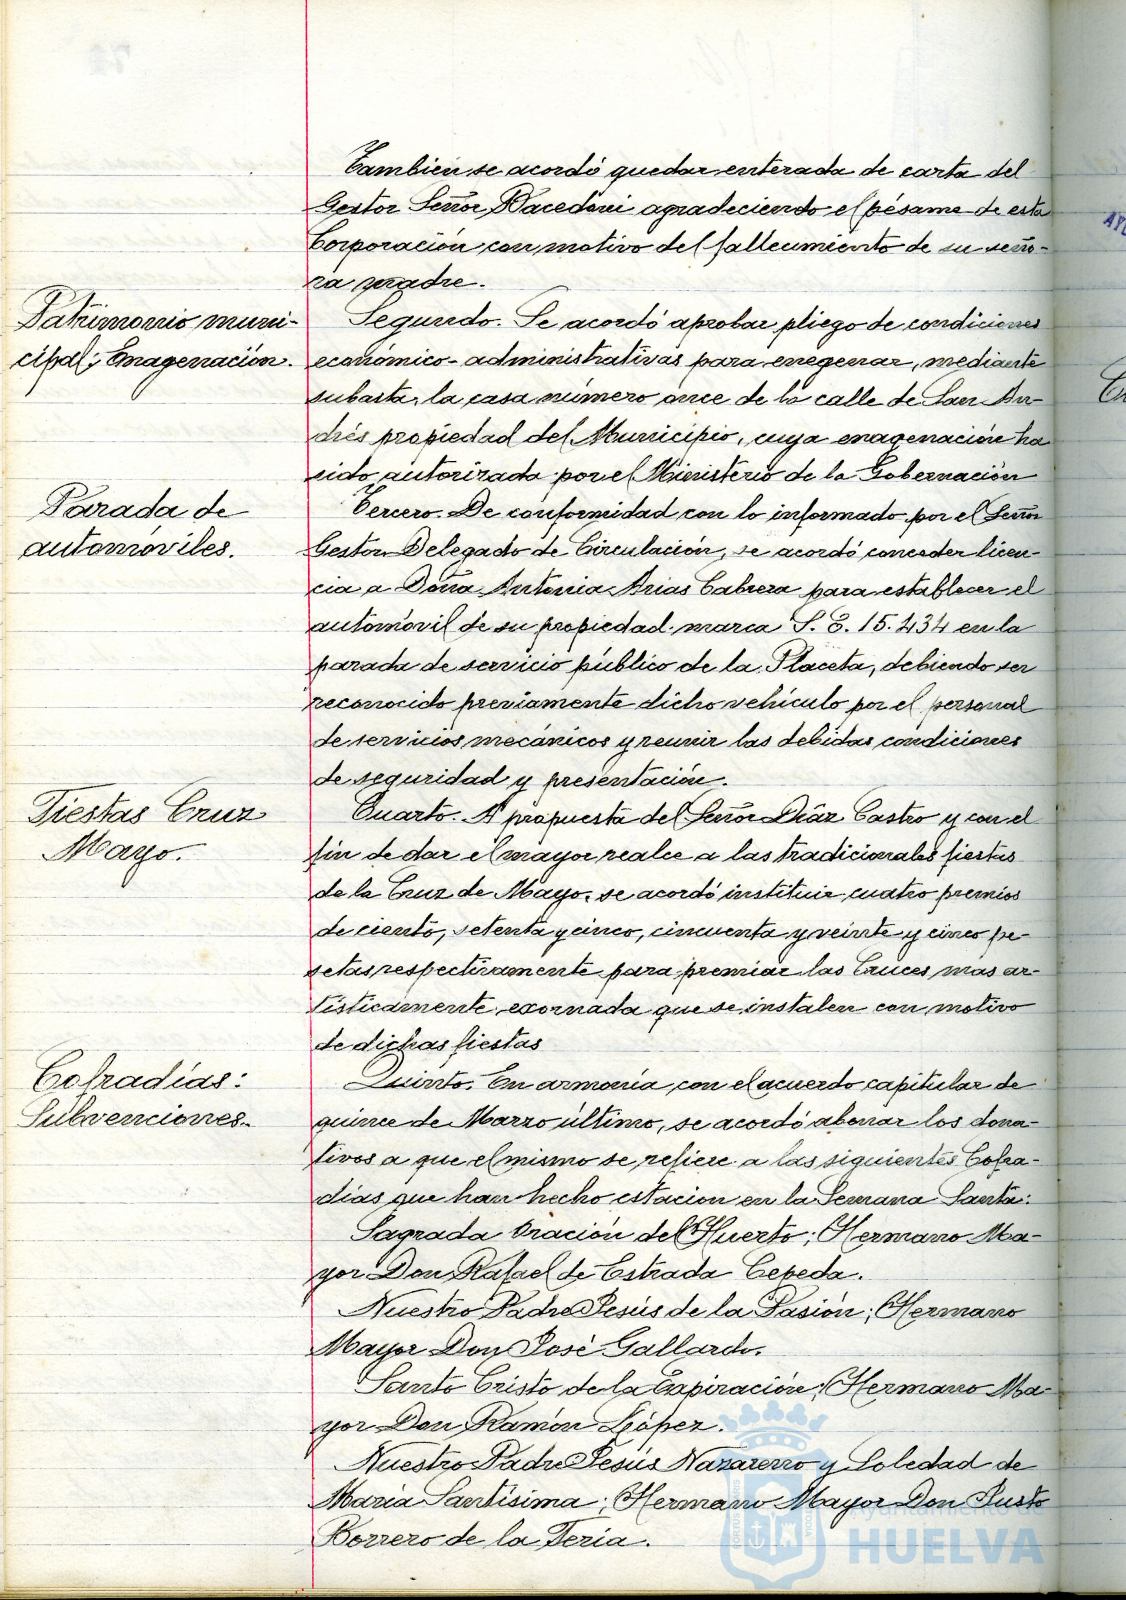 Tambien se acordó quedar enterada de carta del
Gestor Señor agradeciendo el pésame de esta
Corporación con motivo del fallecimiento de su seño-
ra madre.
Patrimonio muni-
cipal; Enagenación.
Segundo. Se acordó aprobar pliego de condiciones
económico-administrativas para enegenar, mediante
subasta, la casa número once de la calle de San An-
drés propiedad del Municipio, cuya enagenación ha
sido autorizada por el Ministerio de la Gobernación
Parada de
automóviles.
Tercero. De conformidad con lo informado por el Señor
Gestor Delegado de Circulación, se acordó conceder licen-
cia a Doña Antonia Arias Cabrera para establecer el
automóvil de su propiedad marca S.E. 15.434 en la
parada de servicio público de la Placeta, debiendo ser
reconocido previamente dicho vehículo por el personal
de servicios mecánicos y reunir las debidas condiciones
de seguridad y presentación.
Fiestas Cruz
Mayo.
Cuarto. A propuesta del Señor Diáz Castro y con el
fin de dar el mayor realce a las tradicionales fiestas
de la Cruz de Mayo, se acordó instituir cuatro premios
de ciento, setenta y cinco, cincuenta y veinte y cinco pe-
setas respectivamente para premiar las Cruces mas ar-
tísticamente exornada que se instalen con motivo
de dichas fiestas
Cofradías:
Subvenciones.
Quinto. En armonía con el acuerdo capitular de
quince de Marzo último, se acordó abonar los dona-
tivos a que el mismo se refiere a las siguientes Cofra-
días que han hecho estación en la Semana Santa:
Sagrada Oración del Huerto; Hermano Ma-
yor Don Rafael de Estrada Cepeda.
Nuestro Padre Jesús de la Pasión; Hermano
Mayor Don José Gallardo.
Santo Cristo de la Expiración; Hermano Ma-
yor Don Ramón López.
Nuestro Padre Jesús Nazareno y Soledad de
María Santísima; Hermano Mayor Don Justo
Borrero de la Feria.
Ayuntamiento de
HUELVA